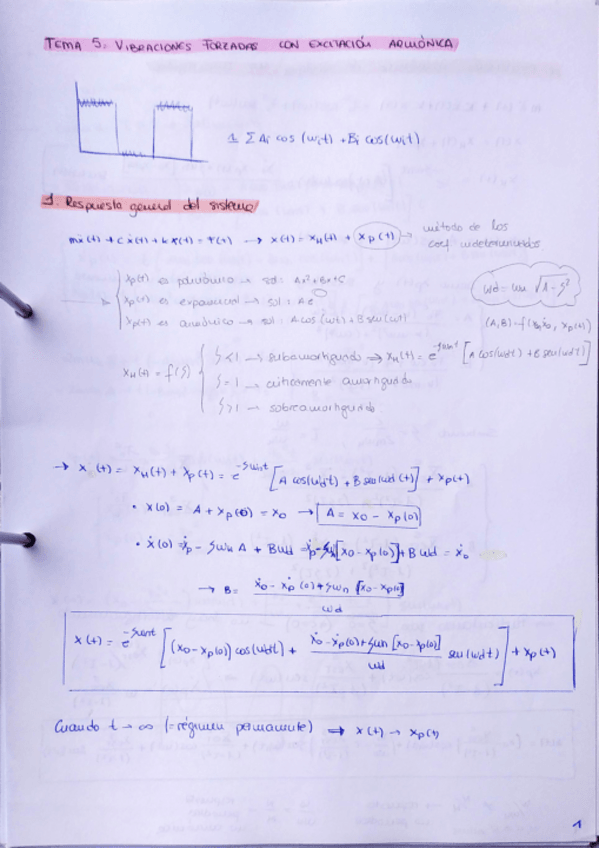 TEMA 5: VIBRACIONES FORZADAS CON EXCITACIÓN ARMÓNICA
Σ Ai cos (wit) + Bi cos(wit)
1. Respuesta general del sistema
mẍ(t) + cẋ(t) + kx(t) = F(t) → x(t) = xH(t) + xp(t) → método de los coef indeterminados
xp(t) es polinómico → sol: Ax²+Bx+C
xp(t) es exponencial → sol: Ae
xp(t) es armónico → sol: A cos(wt) + B sen(wt)
wd = wn √1-ζ²
(A,B) = f(x0, ẋ0, xp(t))
xH(t) = f(ζ)
ζ<1 → subamortiguado ⇒ xH(t) = e^-ζwnt [A cos(wdt) + B sen(wdt)]
ζ=1 → críticamente amortiguado
ζ>1 → sobreamortiguado
→ x(t) = xH(t) + xp(t) = e^-ζwnt [A cos(wdt) + B sen(wdt)] + xp(t)
• x(0) = A + xp(0) = x0 → A = x0 - xp(0)
• ẋ(0) = ẋp - ζwn A + B wd = ẋp - ζwn[x0 - xp(0)] + B wd = ẋ0
→ B = ẋ0 - ẋp(0) + ζwn [x0 - xp(0)] / wd
x(t) = e^-ζwnt [(x0 - xp(0)) cos(wdt) + ẋ0 - ẋp(0) + ζwn [x0 - xp(0)] / wd sen(wdt)] + xp(t)
Cuando t → ∞ (= régimen permanente) ⇒ x(t) → xp(t)
1